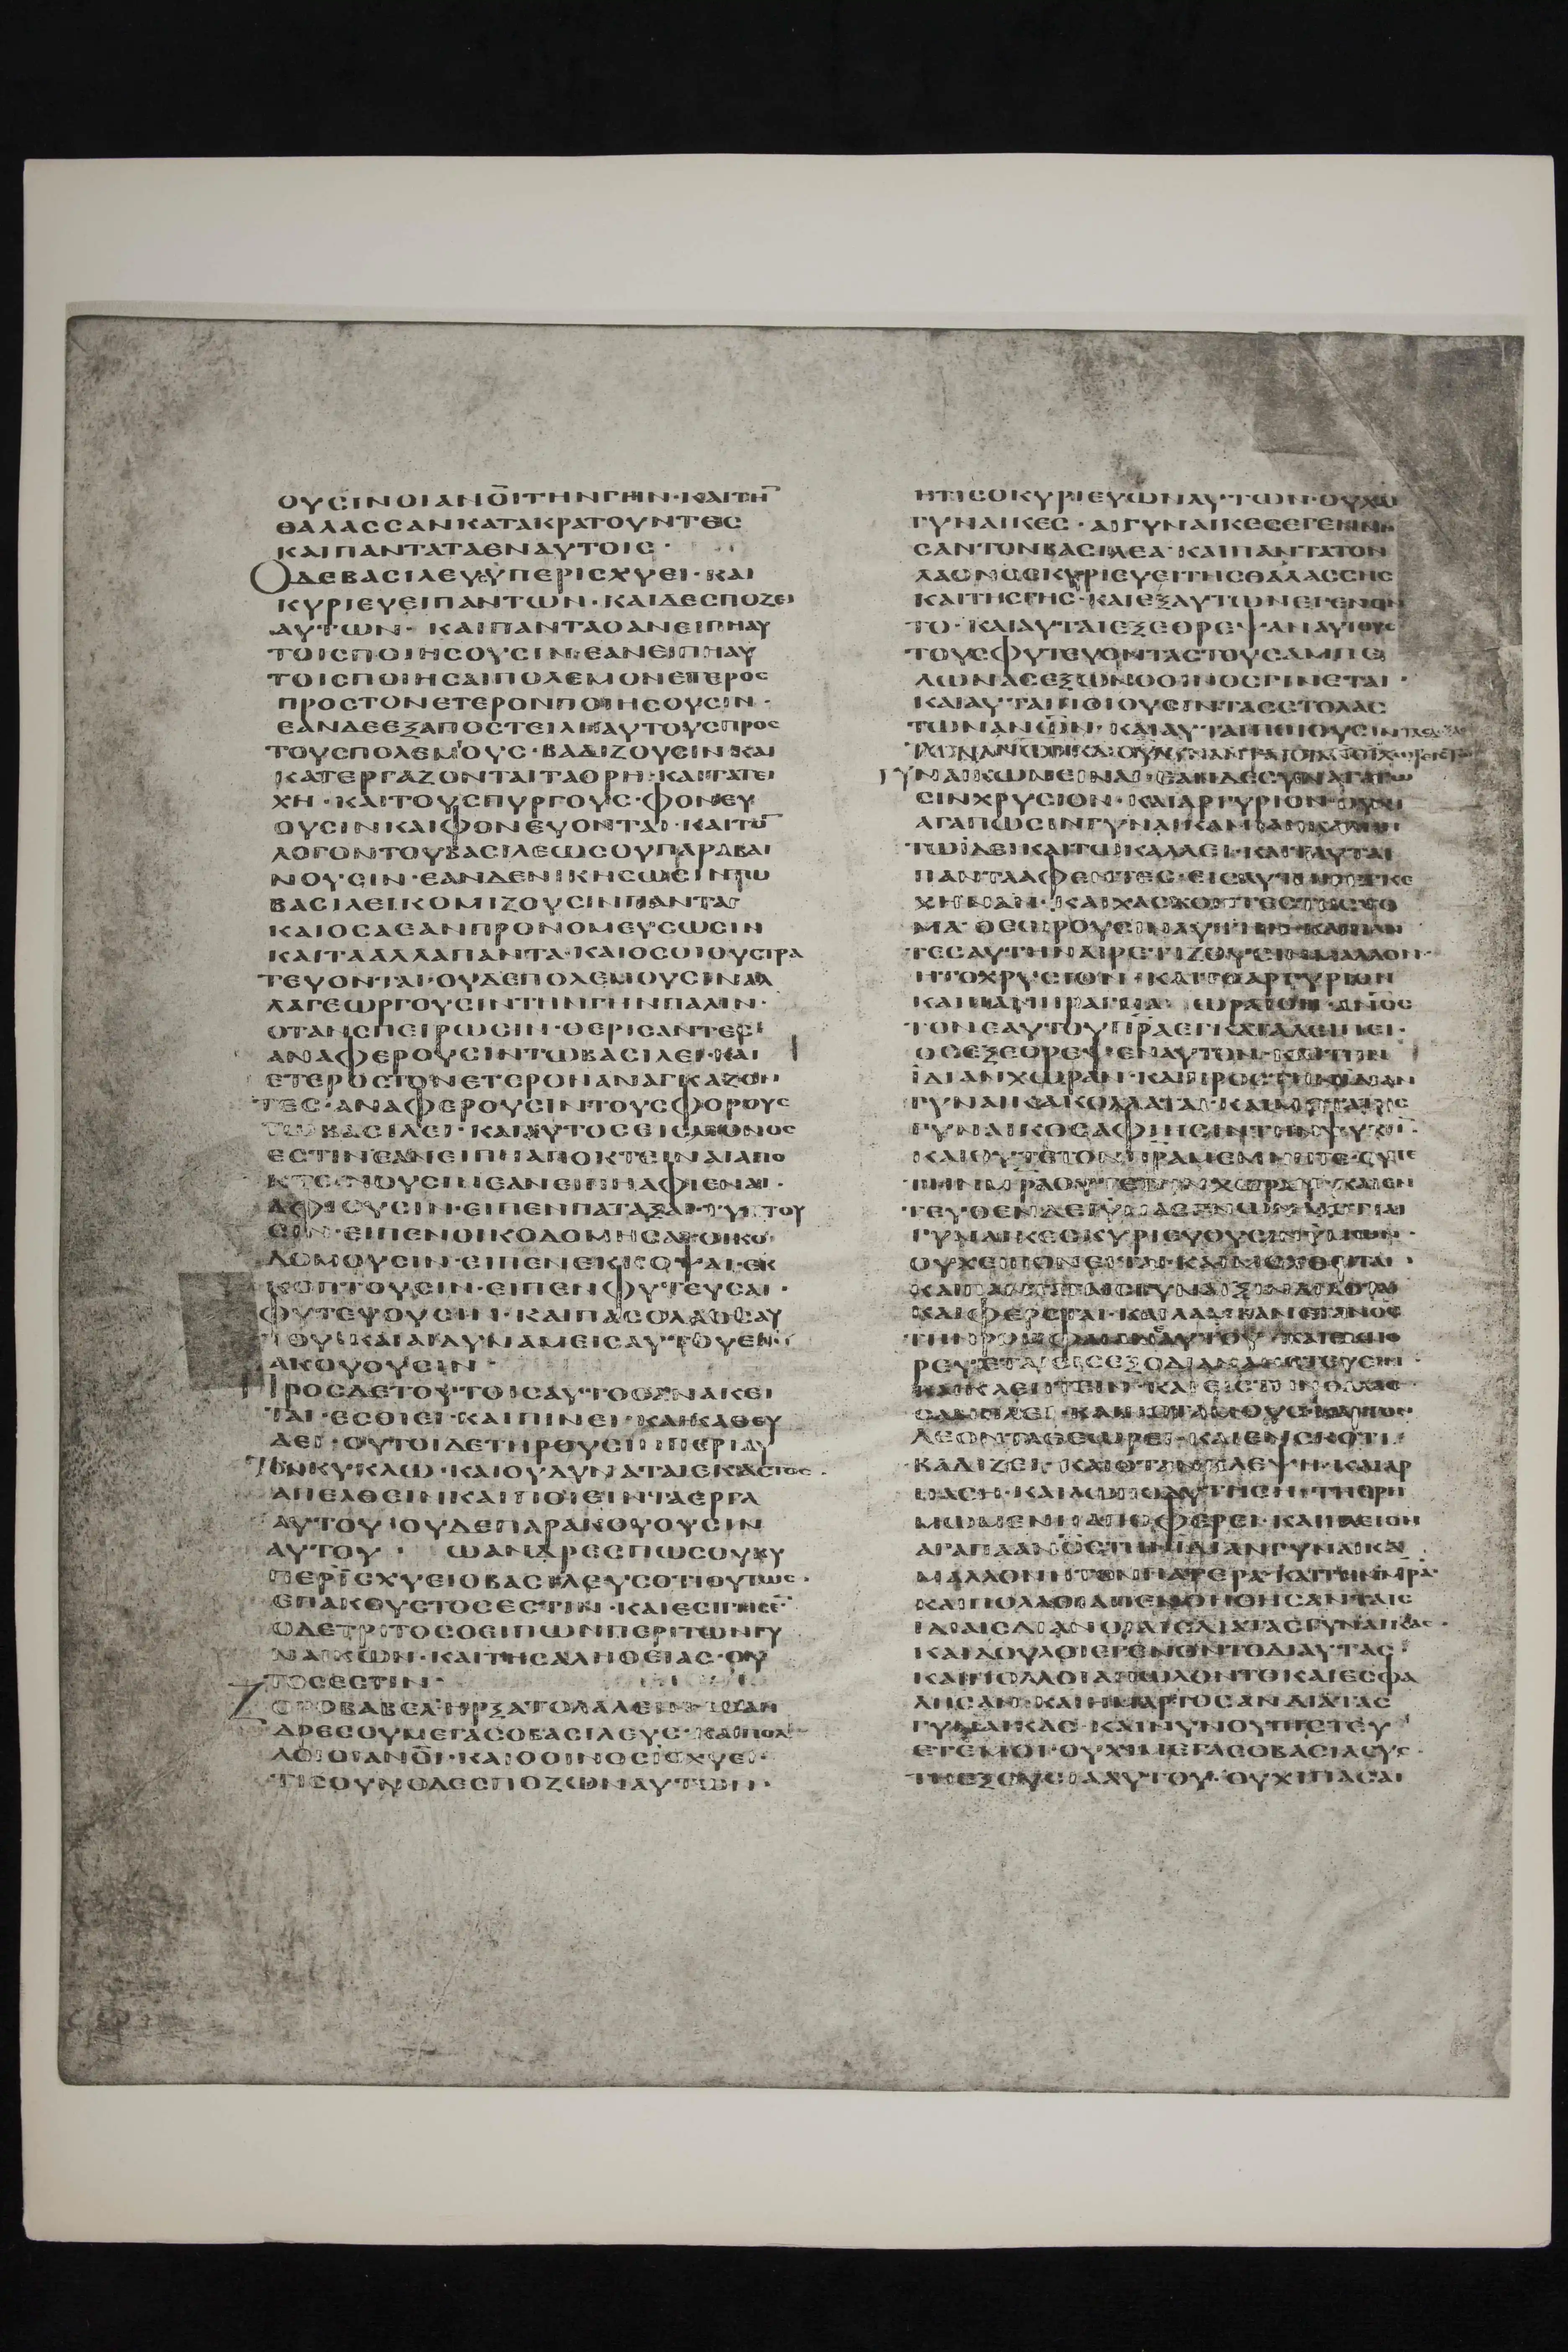 ΟΥϹΙΝΟΙΑΝΟΙΤΗΝΓΗΝ·ΚΑΙΤΗ
ΘΑΛΑϹϹΑΝΚΑΤΑΚΡΑΤΟΥΝΤΕϹ
ΚΑΙΠΑΝΤΑΤΑΕΝΑΥΤΟΙϹ·
ΟΔΕΒΑϹΙΛΕΥϹΥΠΕΡΙϹΧΥΕΙ·ΚΑΙ
ΚΥΡΙΕΥΕΙΠΑΝΤΩΝ·ΚΑΙΔΕϹΠΟΖΕΙ
ΑΥΤΩΝ·ΚΑΙΠΑΝΤΑΟΑΝΕΙΠΗΑΥ
ΤΟΙϹΠΟΙΗϹΟΥϹΙΝ·ΕΑΝΕΙΠΗΑΥ
ΤΟΙϹΠΟΙΗϹΑΙΠΟΛΕΜΟΝΕΤΕΡΟϹ
ΠΡΟϹΤΟΝΕΤΕΡΟΝΠΟΙΗϹΟΥϹΙΝ·
ΕΑΝΔΕΕΞΑΠΟϹΤΕΙΛΗΑΥΤΟΥϹΠΡΟϹ
ΤΟΥϹΠΟΛΕΜΟΥϹ·ΒΑΔΙΖΟΥϹΙΝ·ΚΑΙ
ΚΑΤΕΡΓΑΖΟΝΤΑΙΤΑΟΡΗ·ΚΑΙΤΑΤΕΙ
ΧΗ·ΚΑΙΤΟΥϹΠΥΡΓΟΥϹ·ΦΟΝΕΥ
ΟΥϹΙΝΚΑΙΦΟΝΕΥΟΝΤΑΙ·ΚΑΙΤΟ
ΛΟΓΟΝΤΟΥΒΑϹΙΛΕΩϹΟΥΠΑΡΑΒΑΙ
ΝΟΥϹΙΝ·ΕΑΝΔΕΝΙΚΗϹΩϹΙΝΤΩ
ΒΑϹΙΛΕΙΚΟΜΙΖΟΥϹΙΝΠΑΝΤΑ
ΚΑΙΟϹΑΕΑΝΠΡΟΝΟΜΕΥϹΩϹΙΝ
ΚΑΙΤΑΑΛΛΑΠΑΝΤΑ·ΚΑΙΟϹΟΙΟΥϹΤΡΑ
ΤΕΥΟΝΤΑΙ·ΟΥΔΕΠΟΛΕΜΟΥϹΙΝΑΛ
ΛΑΓΕΩΡΓΟΥϹΙΝΤΗΝΓΗΝΠΑΛΙΝ·
ΟΤΑΝϹΠΕΙΡΩϹΙΝ·ΘΕΡΙϹΑΝΤΕϹ
ΑΝΑΦΕΡΟΥϹΙΝΤΩΒΑϹΙΛΕΙ·ΚΑΙ
ΕΤΕΡΟϹΤΟΝΕΤΕΡΟΝΑΝΑΓΚΑΖΟΝ
ΤΕϹ·ΑΝΑΦΕΡΟΥϹΙΝΤΟΥϹΦΟΡΟΥϹ
ΤΩΒΑϹΙΛΕΙ·ΚΑΙΑΥΤΟϹΕΙϹΜΟΝΟϹ
ΕϹΤΙΝΕΑΝΕΙΠΗΑΠΟΚΤΕΙΝΑΙΑΠΟ
ΚΤΕΝΝΟΥϹΙΝΕΑΝΕΙΠΗΑΦΙΕΝΑΙ·
ΑΦΙΟΥϹΙΝ·ΕΙΠΕΝΠΑΤΑΞΑΙ·ΤΥΠΤΟΥ
ϹΙΝ·ΕΙΠΕΝΟΙΚΟΔΟΜΗϹΑΙ·ΟΙΚΟ
ΔΟΜΟΥϹΙΝ·ΕΙΠΕΝΕΚΚΟΨΑΙ·ΕΚ
ΚΟΠΤΟΥϹΙΝ·ΕΙΠΕΝΦΥΤΕΥϹΑΙ·
ΦΥΤΕΥΟΥϹΙΝ·ΚΑΙΠΑϹΟΛΑΟϹΑΥ
ΤΟΥ·ΚΑΙΑΙΔΥΝΑΜΕΙϹΑΥΤΟΥΕΝ
ΑΚΟΥΟΥϹΙΝ·
ΠΡΟϹΔΕΤΟΥΤΟΙϹΑΥΤΟϹΑΝΑΚΕΙ
ΤΑΙ·ΕϹΘΙΕΙ·ΚΑΙΠΙΝΕΙ·ΚΑΙΚΑΘΕΥ
ΔΕΙ·ΟΥΤΟΙΔΕΤΗΡΟΥϹΙΝΠΕΡΙΑΥ
ΤΟΝΚΥΚΛΩ·ΚΑΙΟΥΔΥΝΑΤΑΙΕΚΑϹΤΟϹ·
ΑΠΕΛΘΕΙΝΚΑΙΠΟΙΕΙΝΤΑΕΡΓΑ
ΑΥΤΟΥ·ΟΥΔΕΠΑΡΑΚΟΥΟΥϹΙΝ
ΑΥΤΟΥ· ΩΑΝΔΡΕϹΠΩϹΟΥΧΥ
ΠΕΡΙϹΧΥΕΙΟΒΑϹΙΛΕΥϹΟΤΙΟΥΤΩϹ·
ΕΠΑΚΟΥϹΤΟϹΕϹΤΙΝ·ΚΑΙΕϹΙΓΗϹΕ
ΟΔΕΤΡΙΤΟϹΟΕΙΠΩΝΠΕΡΙΤΩΝΓΥ
ΝΑΙΚΩΝ·ΚΑΙΤΗϹΑΛΗΘΕΙΑϹ·ΟΥ
ΤΟϹΕϹΤΙΝ·
ΖΟΡΟΒΑΒΕΛ·ΗΡΞΑΤΟΛΑΛΕΙΝ·ΩΑΝ
ΔΡΕϹΟΥΜΕΓΑϹΟΒΑϹΙΛΕΥϹ·ΚΑΙΠΟΛ
ΛΟΙΟΙΑΝΟΙ·ΚΑΙΟΟΙΝΟϹΙϹΧΥΕΙ·
ΤΙϹΟΥΝΟΔΕϹΠΟΖΩΝΑΥΤΩΝ·
ΗΤΙϹΟΚΥΡΙΕΥΩΝΑΥΤΩΝ·ΟΥΧΑΙ
ΓΥΝΑΙΚΕϹ·ΑΙΓΥΝΑΙΚΕϹΕΓΕΝΝΗ
ϹΑΝΤΟΝΒΑϹΙΛΕΑ·ΚΑΙΠΑΝΤΑΤΟΝ
ΛΑΟΝΟϹΚΥΡΙΕΥΕΙΤΗϹΘΑΛΑϹϹΗϹ
ΚΑΙΤΗϹΓΗϹ·ΚΑΙΕΞΑΥΤΩΝΕΓΕΝΟΝ
ΤΟ·ΚΑΙΑΥΤΑΙΕΞΕΘΡΕΨΑΝΑΥΤΟΥϹ
ΤΟΥϹΦΥΤΕΥΟΝΤΑϹΤΟΥϹΑΜΠΕ
ΛΩΝΑϹΕΞΩΝΟΟΙΝΟϹΓΙΝΕΤΑΙ·
ΚΑΙΑΥΤΑΙΠΟΙΟΥϹΙΝΤΑϹϹΤΟΛΑϹ
ΤΩΝΑΝΩΝ·ΚΑΙΑΥΤΑΙΠΟΙΟΥϹΙΝ
ΓΥΝΑΙΚΩΝΕΙΝΑΙ·
ϹΙΝΧΡΥϹΙΟΝ·ΚΑΙΑΡΓΥΡΙΟΝ
ΑΓΑΠΩϹΙΝΓΥΝΑΙΚΑΜΙΑΝ
ΤΩΙΔΕΙΚΑΙΤΩΚΑΛΛΕΙ·ΚΑΙΤΑΥΤΑ
ΠΑΝΤΑΑΦΕΝΤΕϹ·ΕΙϹΑΥΤΗΝ
ΧΗΝΑΝ·ΚΑΙΧΑϹΚΟΝΤΕϹΤΟϹΤΟ
ΜΑ·ΘΕΩΡΟΥϹΙΝΑΥΤΗΝ·ΚΑΙΠΑΝ
ΤΕϹΑΥΤΗΝΑΙΡΕΤΙΖΟΥϹΙΝΜΑΛΛΟΝ·
ΗΤΟΧΡΥϹΙΟΝ·ΚΑΙΤΟΑΡΓΥΡΙΟΝ
ΚΑΙΠΑΝΠΡΑΓΜΑ ΩΡΑΙΟΝ·ΑΝΟϹ
ΤΟΝΕΑΥΤΟΥΠΡΑΕΓΚΑΤΑΛΕΙΠΕΙ·
ΟϹΕΞΕΘΡΕΨΕΝΑΥΤΟΝ·ΚΑΙΤΗΝ
ΙΔΙΑΝΧΩΡΑΝ·ΚΑΙΠΡΟϹΤΗΝΙΔΙΑΝ
ΓΥΝΑΙΚΑΚΟΛΛΑΤΑΙ·ΚΑΙΜΕΤΑΤΗϹ
ΓΥΝΑΙΚΟϹΑΦΙΗϹΙΝΤΗΝΨΥΧΗ·
ΚΑΙΟΥΤΕΤΟΝΠΡΑΜΕΜΝΗΤΕ·ΟΥΤΕ
ΤΗΝΜΡΑΟΥΤΕΤΗΝΧΩΡΑΝ·ΚΑΙΕΝ
ΤΕΥΘΕΝΔΕΙΥΜΑϹΓΝΩΝΑΙΟΤΙΑΙ
ΓΥΝΑΙΚΕϹΚΥΡΙΕΥΟΥϹΙΝΥΜΩΝ·
ΟΥΧΕΙΠΟΝΕΙΤΑΙ·ΚΑΙΜΟΧΘΕΙΤΑΙ·
ΚΑΙΠΑΝΤΑΤΑΙϹΓΥΝΑΙΞΙΝ
ΚΑΙΦΕΡΕΤΑΙ·ΚΑΙΛΑΜΒΑΝΕΙΑΝΟϹ
ΤΗΝΡΟΜΦΑΙΑΝΑΥΤΟΥ·ΚΑΙΕΚΠΟ
ΡΕΥΕΤΑΙΕΙϹΕΞΟΔΙΑΝΛΗϹΤΕΥΕΙΝ·
ΚΑΙΚΛΕΠΤΕΙΝ·ΚΑΙΕΙϹΤΗΝΘΑΛΑϹ
ϹΑΝΠΛΕΙ·ΚΑΙΠΟΤΑΜΟΥϹ·ΚΑΙΤΟ
ΛΕΟΝΤΑΘΕΩΡΕΙ·ΚΑΙΕΝϹΚΟΤΙ
ΒΑΔΙΖΕΙ·ΚΑΙΟΤΑΝΚΛΕΨΗ·ΚΑΙΑΡ
ΠΑϹΗ·ΚΑΙΛΩΠΟΔΥΤΗϹΗ·ΤΗΕΡΩ
ΜΩΜΕΝΗΑΠΟΦΕΡΕΙ·ΚΑΙΠΛΕΙΟΝ
ΑΓΑΠΑΑΝΟϹΤΗΝΙΔΙΑΝΓΥΝΑΙΚΑ
ΜΑΛΛΟΝΗΤΟΝΠΑΤΕΡΑ·ΚΑΙΤΗΝΜΡΑ·
ΚΑΙΠΟΛΛΟΙΑΠΕΝΟΗΘΗϹΑΝΤΑΙϹ
ΙΔΙΑΙϹΔΙΑΝΟΙΑΙϹΔΙΑΤΑϹΓΥΝΑΙΚΑϹ·
ΚΑΙΔΟΥΛΟΙΕΓΕΝΟΝΤΟΔΙΑΥΤΑϹ·
ΚΑΙΠΟΛΛΟΙΑΠΩΛΟΝΤΟΚΑΙΕϹΦΑ
ΛΗϹΑΝ·ΚΑΙΗΜΑΡΤΟϹΑΝΔΙΑΤΑϹ
ΓΥΝΑΙΚΑϹ·ΚΑΙΝΥΝΟΥΠΙϹΤΕΥ
ΕΤΕΜΟΙ·ΟΥΧΙΜΕΓΑϹΟΒΑϹΙΛΕΥϹ·
ΤΗΕΞΟΥϹΙΑΑΥΤΟΥ·ΟΥΧΙΠΑϹΑΙ